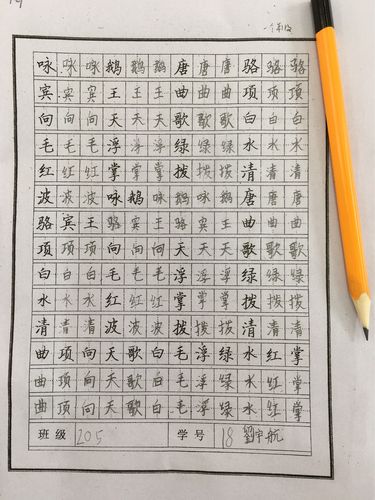 咏咏咏鹅鹅鹅唐唐唐骆骆骆
宾宾宾王王王曲曲曲项项项
向向向天天天歌歌歌白白白
毛毛毛浮浮浮绿绿绿水水水
红红红掌掌掌拨拨拨清清清
波波波咏鹅咏鹅鹅咏唐唐唐
骆宾王骆宾王骆宾王曲曲曲
项项项向向向天天天歌歌歌
白白白毛毛毛浮浮浮绿绿绿
水水水红红红掌掌掌拨拨拨
清清清波波波拨拨拨清清清
曲项向天歌白毛浮绿水红掌
曲项向天歌白毛浮绿水红掌
曲项向天歌白毛浮绿水红掌
班级 205 学号 18 劉宇航